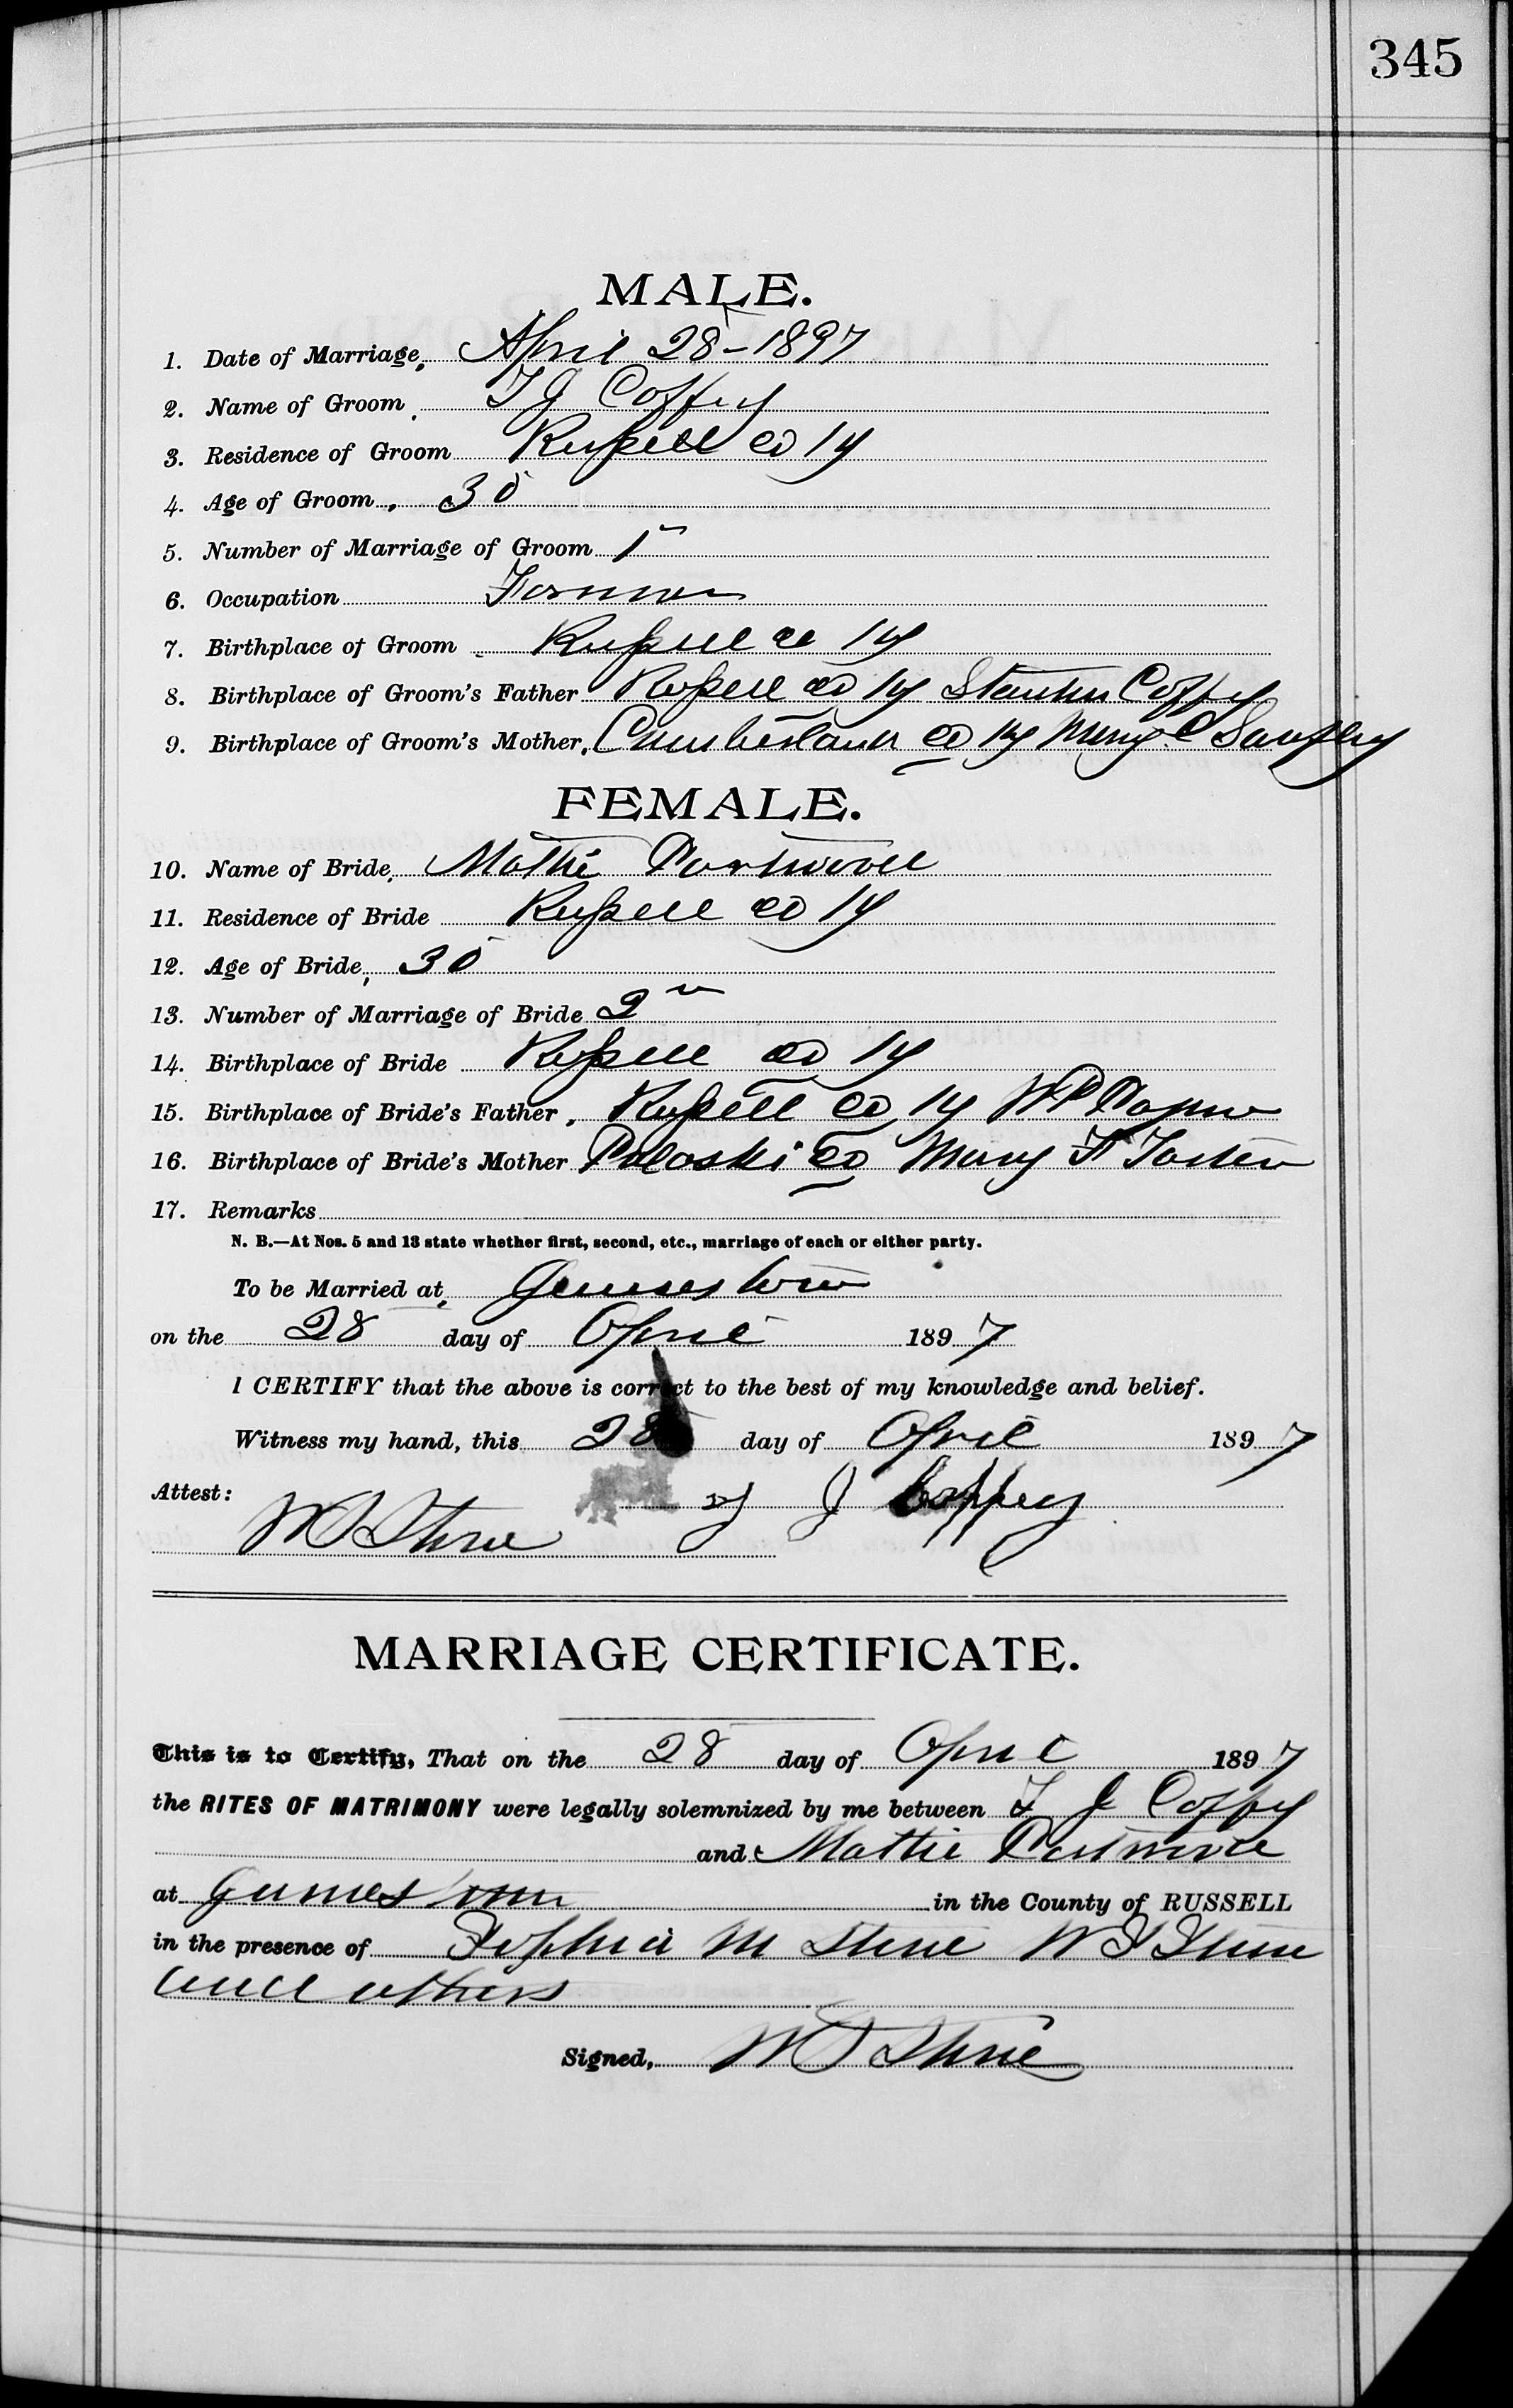 345
MALE.
1. Date of Marriage, April 28-1897
2. Name of Groom T J Coffey
3. Residence of Groom Russell Co Ky
4. Age of Groom 30
5. Number of Marriage of Groom 1
6. Occupation Farmer
7. Birthplace of Groom Russell Co Ky
8. Birthplace of Groom's Father Russell Co Ky Coffey
9. Birthplace of Groom's Mother, Cumberland Co Ky Mary
FEMALE.
10. Name of Bride, Mattie Portwood
11. Residence of Bride Russell Co Ky
12. Age of Bride, 30
13. Number of Marriage of Bride 2
14. Birthplace of Bride Russell Co Ky
15. Birthplace of Bride's Father, Russell Co Ky W P
16. Birthplace of Bride's Mother Polaski Co Mary F
17. Remarks
N. B.—At Nos. 5 and 13 state whether first, second, etc., marriage of each or either party.
To be Married at, Jamestown
on the 28 day of April 1897
I CERTIFY that the above is correct to the best of my knowledge and belief.
Witness my hand, this 28 day of April 1897
Attest: T J Coffey
W S Stone
MARRIAGE CERTIFICATE.
This is to Certify, That on the 28 day of April 1897
the RITES OF MATRIMONY were legally solemnized by me between T J Coffey
and Mattie Portwood
at Jamestown in the County of RUSSELL
in the presence of Sophia M Stone W S Stone
and others
Signed, W S Stone